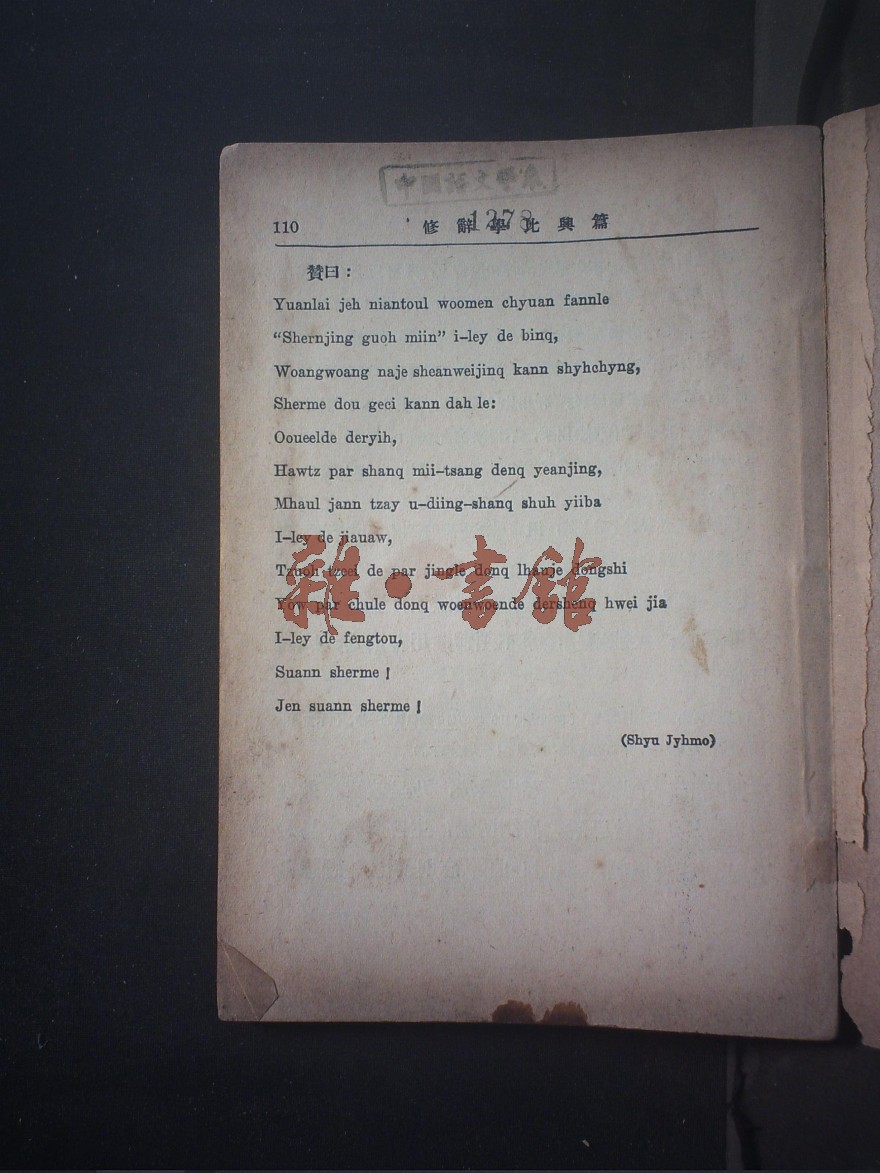 中國語文學系
110
1278
修辭學比興篇
贊曰：
Yuanlai jeh niantoul woomen chyuan fannle
“Shernjing guoh miin” i-ley de binq,
Woangwoang naje sheanweijinq kann shyhchyng,
Sherme dou geei kann dah le:
Ooueelde deryih,
Hawtz par shanq mii-tsang denq yeanjing,
Mhaul jann tzay u-diing-shanq shuh yiiba
I-ley de jiauaw,
Tzuoh-tzeei de par jingle donq lhauje dongshi
Yow par chule donq woenwoende dershenq hwei jia
I-ley de fengtou,
Suann sherme!
Jen suann sherme!
(Shyu Jyhmo)
雜·書館